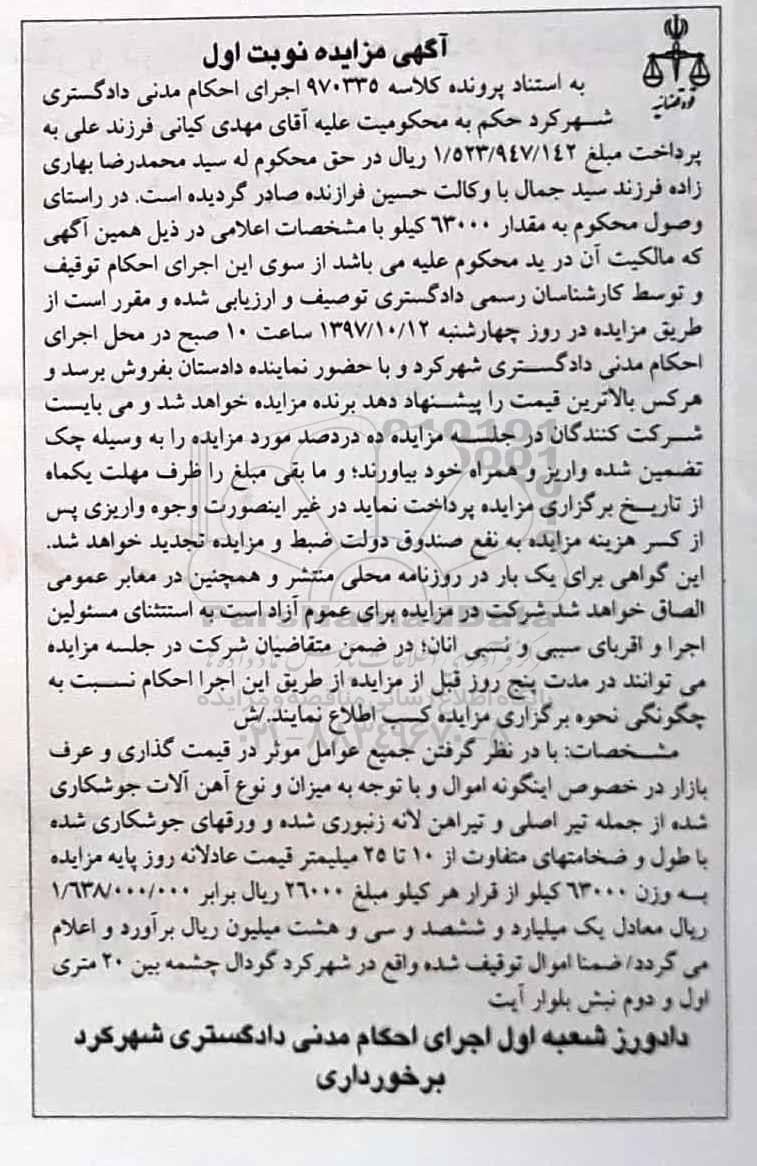 آگهی مزایده نوبت اول
قوه قضائیه
به استناد پرونده کلاسه ۹۷۰۳۳۵ اجرای احکام مدنی دادگستری
شهرکرد حکم به محکومیت علیه آقای مهدی کیانی فرزند علی به
پرداخت مبلغ ۱/۵۲۳/۹۴۷/۱۴۲ ریال در حق محکوم له سید محمدرضا بهاری
زاده فرزند سید جمال با وکالت حسین فرازنده صادر گردیده است. در راستای
وصول محکوم به مقدار ۶۳۰۰۰ کیلو با مشخصات اعلامی در ذیل همین آگهی
که مالکیت آن در ید محکوم علیه می باشد از سوی این اجرای احکام توقیف
و توسط کارشناسان رسمی دادگستری توصیف و ارزیابی شده و مقرر است از
طریق مزایده در روز چهارشنبه ۱۳۹۷/۱۰/۱۲ ساعت ۱۰ صبح در محل اجرای
احکام مدنی دادگستری شهرکرد و با حضور نماینده دادستان بفروش برسد و
هرکس بالاترین قیمت را پیشنهاد دهد برنده مزایده خواهد شد و می بایست
شرکت کنندگان در جلسه مزایده ده دردصد مورد مزایده را به وسیله چک
تضمین شده واریز و همراه خود بیاورند؛ و ما بقی مبلغ را ظرف مهلت یکماه
از تاریخ برگزاری مزایده پرداخت نماید در غیر اینصورت وجوه واریزی پس
از کسر هزینه مزایده به نفع صندوق دولت ضبط و مزایده تجدید خواهد شد.
این گواهی برای یک بار در روزنامه محلی منتشر و همچنین در معابر عمومی
الصاق خواهد شد شرکت در مزایده برای عموم آزاد است به استثنای مسئولین
اجرا و اقربای سببی و نسبی انان؛ در ضمن متقاضیان شرکت در جلسه مزایده
می توانند در مدت پنج روز قبل از مزایده از طریق این اجرا احکام نسبت به
چگونگی نحوه برگزاری مزایده کسب اطلاع نمایند./ش
۰۲۱-۸۸۳۴۹۶۷۰-۵
مشخصات: با در نظر گرفتن جمیع عوامل موثر در قیمت گذاری و عرف
بازار در خصوص اینگونه اموال و با توجه به میزان و نوع آهن آلات جوشکاری
شده از جمله تیر اصلی و تیراهن لانه زنبوری شده و ورقهای جوشکاری شده
با طول و ضخامتهای متفاوت از ۱۰ تا ۲۵ میلیمتر قیمت عادلانه روز پایه مزایده
به وزن ۶۳۰۰۰ کیلو از قرار هر کیلو مبلغ ۲۶۰۰۰ ریال برابر ۱/۶۳۸/۰۰۰/۰۰۰
ریال معادل یک میلیارد و ششصد و سی و هشت میلیون ریال برآورد و اعلام
می گردد/ ضمنا اموال توقیف شده واقع در شهرکرد گودال چشمه بین ۲۰ متری
اول و دوم نبش بلوار آیت
دادورز شعبه اول اجرای احکام مدنی دادگستری شهرکرد
برخورداری